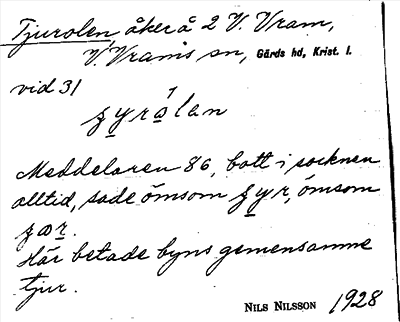 Tjurolen, åker å 2 V. Vram,
V. Vrams sn, Gärds hd, Krist. l.
vid 31
ȥyrålan
Meddelaren 86, bott i socknen
alltid, sade ömsom ȥyr, ömsom
ȥær.
Här betade byns gemensamme
tjur.
NILS NILSSON 1928